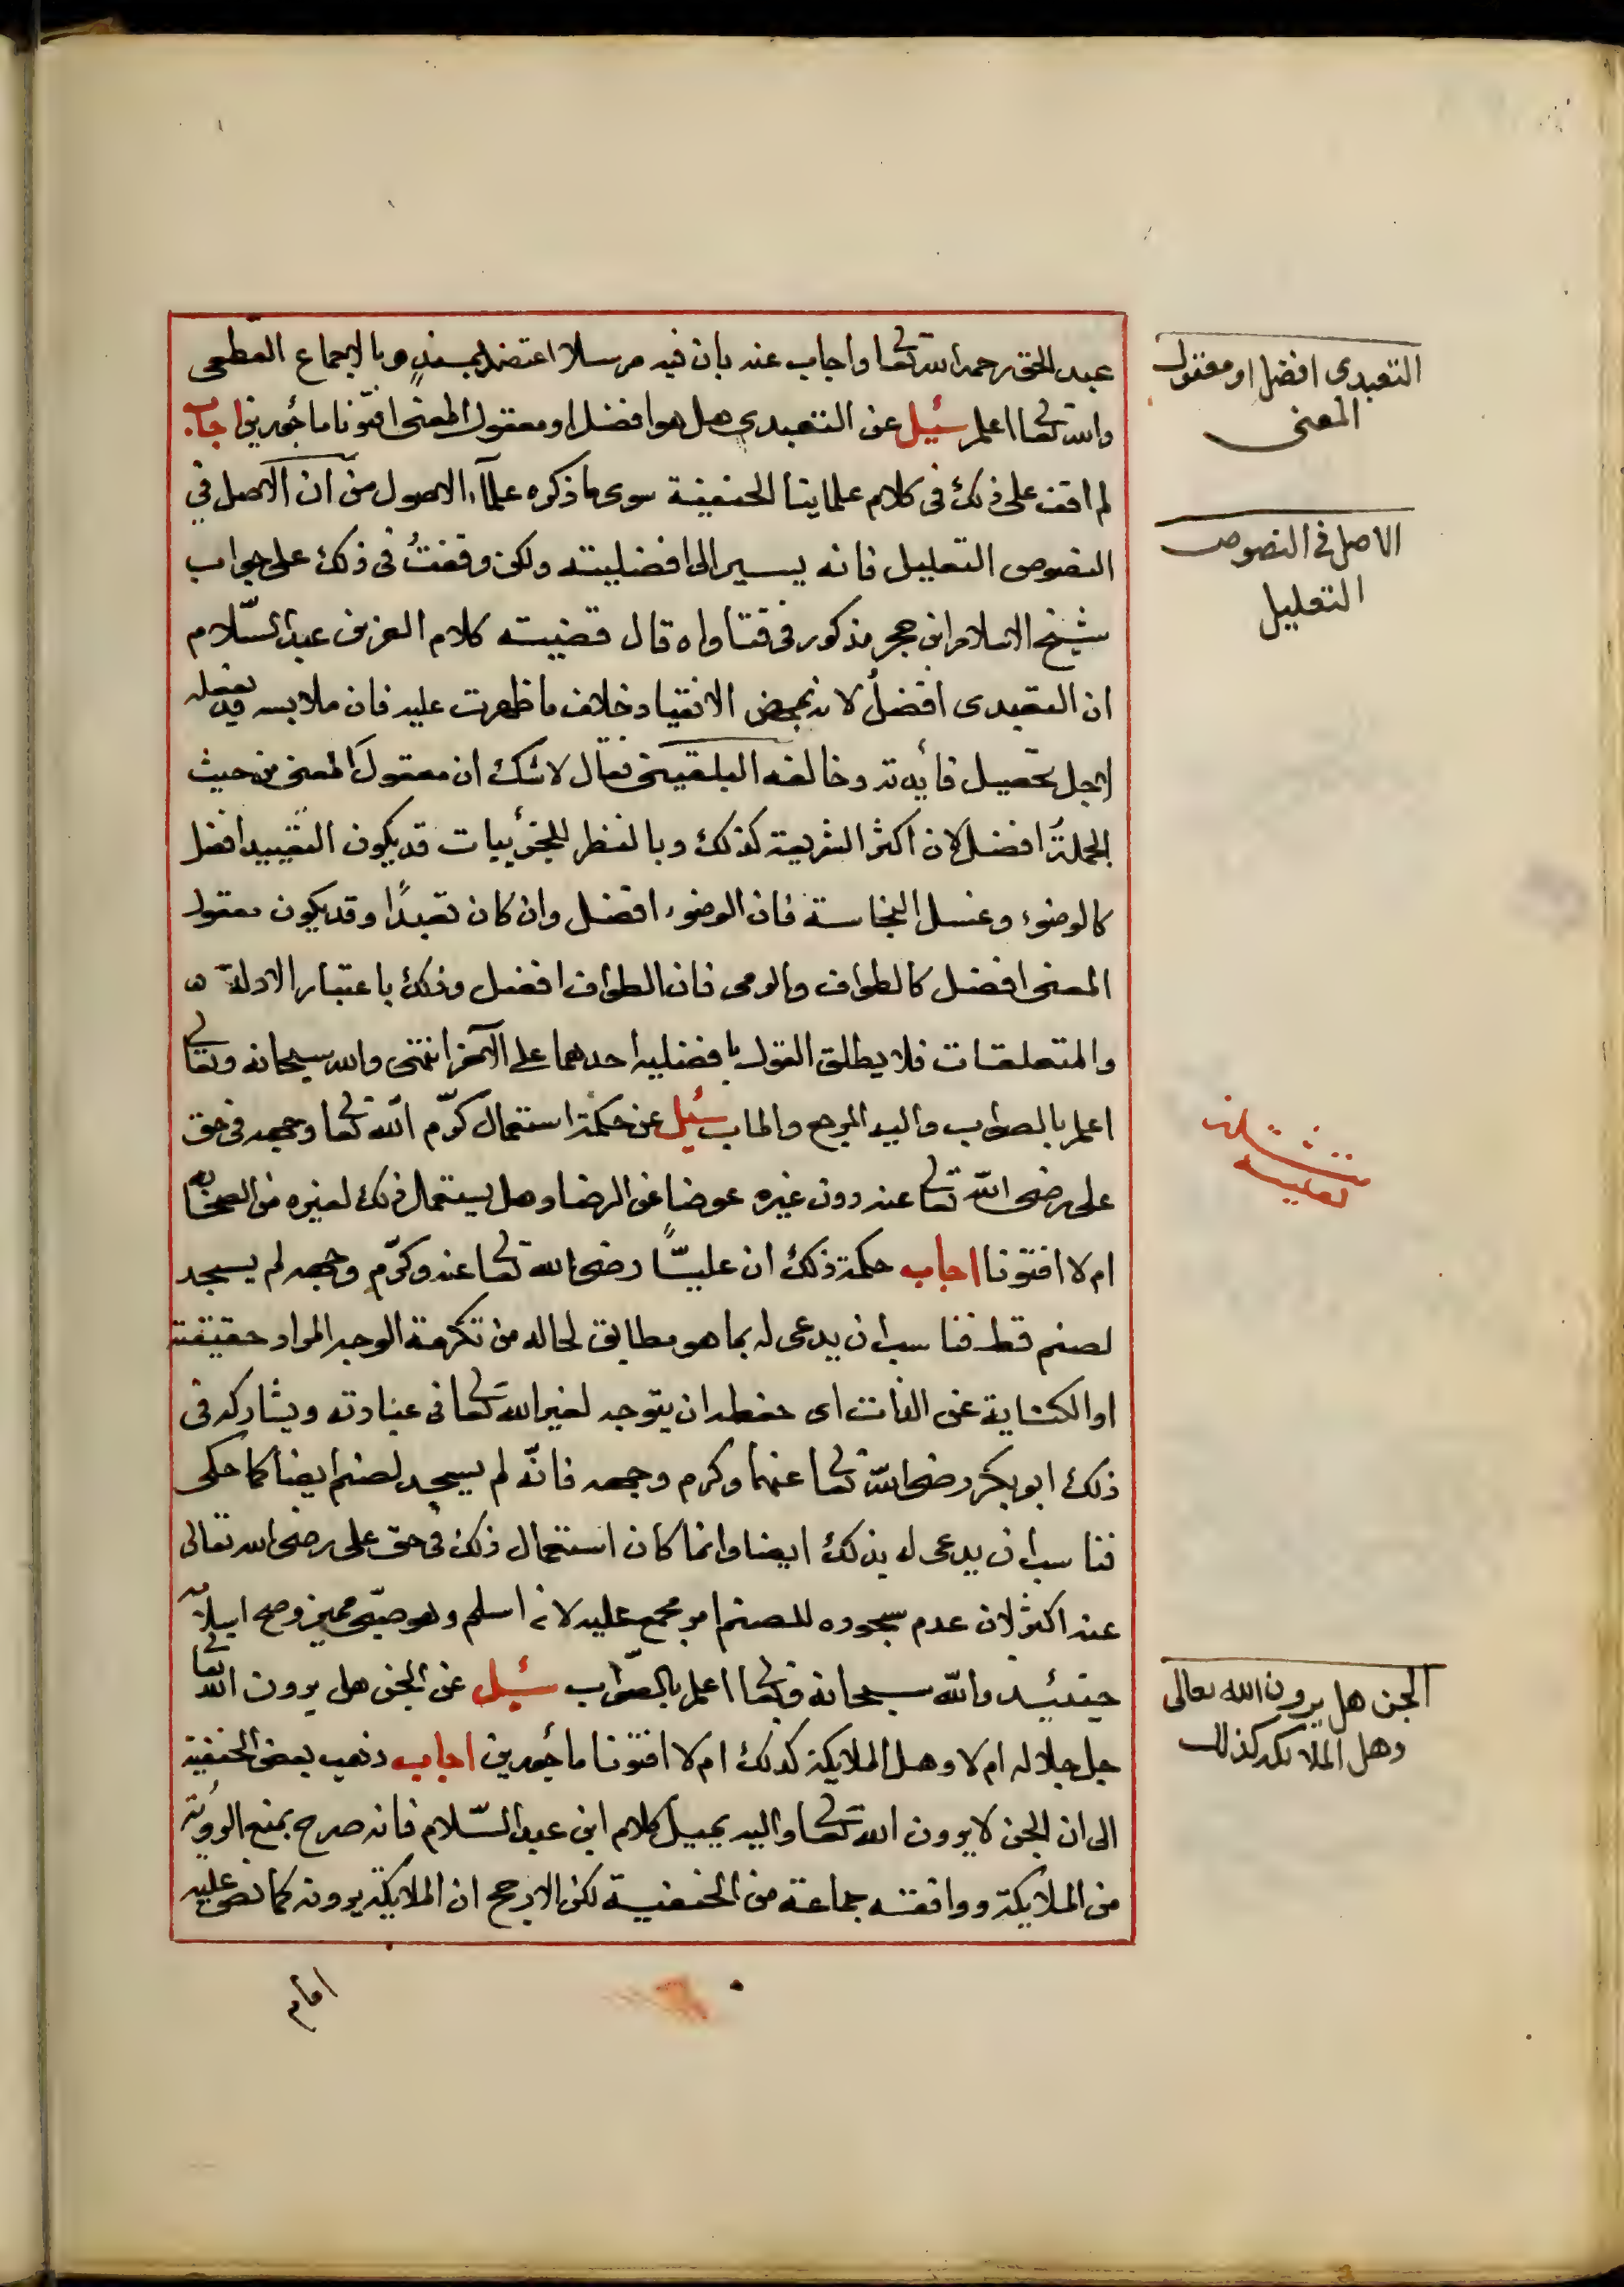 عبد الحق رحمه الله تعا واجاب عنه بان فيه مرسلا اعتضد بمسندٍ وبالاجماع القطعى
والله تعا اعلم سئيل عن التعبدى هل هو افضل او معقول المعنى افتونا مأجورين اجاب
لم اقف على ذلك فى كلام علماينا الحنفية سوى ما ذكره علمآء الاصول من ان الاصل فى
النصوص التعليل فانه يسير الى افضليته ولكن وقفتُ فى ذلك على جواب
شيخ الاسلام ابن حجر مذكور فى فتاواه قال قضيته كلام العز بن عبد السّلام
ان التعبدى افضلُ لانه بمحض الانقياد خلاف ما ظهرت عليه فان ملابسه قد يفعله
لاجل تحصيل فأيدته وخالفه البلقينى فقال لا شك ان معقول المعنى من حيث
الجملةُ افضل لان اكثر الشريعة كذلك وبالنظر للجزُئييات قد يكون التقييد افضل
كالوضوء وغسل النجاسة فان الوضوء افضل وان كان تعبدًا وقد يكون معقول
المعنى افضل كالطواف والرمى فان الطواف افضل وذلك باعتبار الادلة
والمتعلقات فلا يطلق القول بافضليه احدهما على الآخر انتهى والله سبحانه وتعا
اعلم بالصواب واليه المرجع والماب سئيل عن حكمة استعمال كرّم الله تعا وجهه فى حق
على رضى الله تعا عنه دون غيره عوضا عن الرضا وهل يستعمال ذلك لغيره من الصحابة
ام لا افتونا اجاب حكمة ذلك ان عليًّا رضى الله تعا عنه وكرّم وجهه لم يسجد
لصنم قط فناسب ان يدعى له بما هو مطابق لحاله من تكرمة الوجه المراد حقيقة
او الكناية عن الذات اى حفظه ان يتوجه لغير الله تعا فى عبادته ويشاركه فى
ذلك ابو بكر رضى الله تعا عنهما وكرم وجهه فانّه لم يسجد لصنم ايضا كما حكى
فناسب ان يدعى له بذلك ايضا وانما كان استعمال ذلك فى حق على رضى الله تعالى
عنه اكثر لان عدم سجوده للصنم امر مجمع عليه لانه اسلم وهو صبّى مميز وصح اسلامه
حينئيذ والله سبحانه وتعا اعلم بالصّواب سئيل عن الجن هل يرون الله تعا
جل جلاله ام لا وهل الملايكة كذلك ام لا افتونا مأجورين اجاب ذهب بعض الحنفية
الى ان الجن لا يرون الله تعا واليه يميل كلام ابن عبد السّلام فانه صرح بمنع الروية
من الملايكة ووافقته جماعة من الحنفية لكن الارجح ان الملايكة يرونه كما نص عليه
امام
التعبدى افضل او معقول
المعنى
الاصل فى النصوص
التعليل
الجن هل يرون الله تعالى
وهل الملائكه كذلك